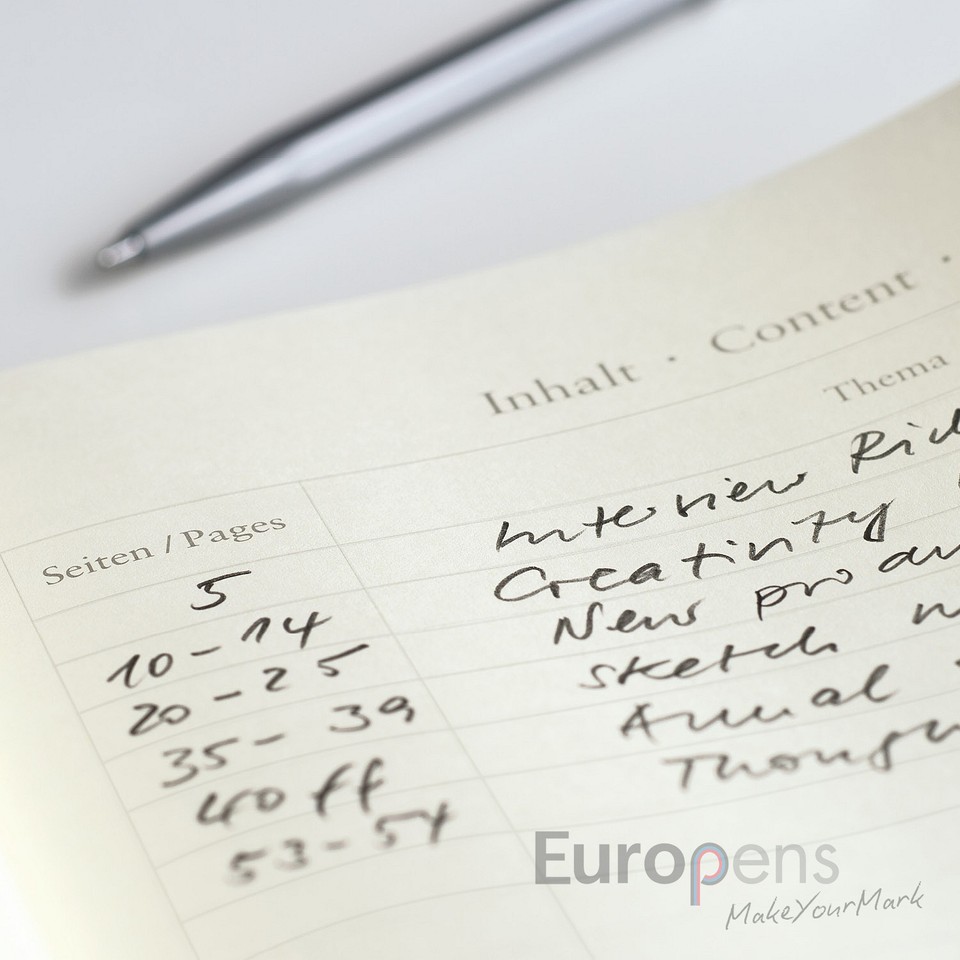 Inhalt · Content ·
Seiten / Pages Thema
5 Interview
10 - 14 Creativity
20 - 25 New
35 - 39 sketch
40 ff Annual
53 - 54
Europens
MakeYourMark